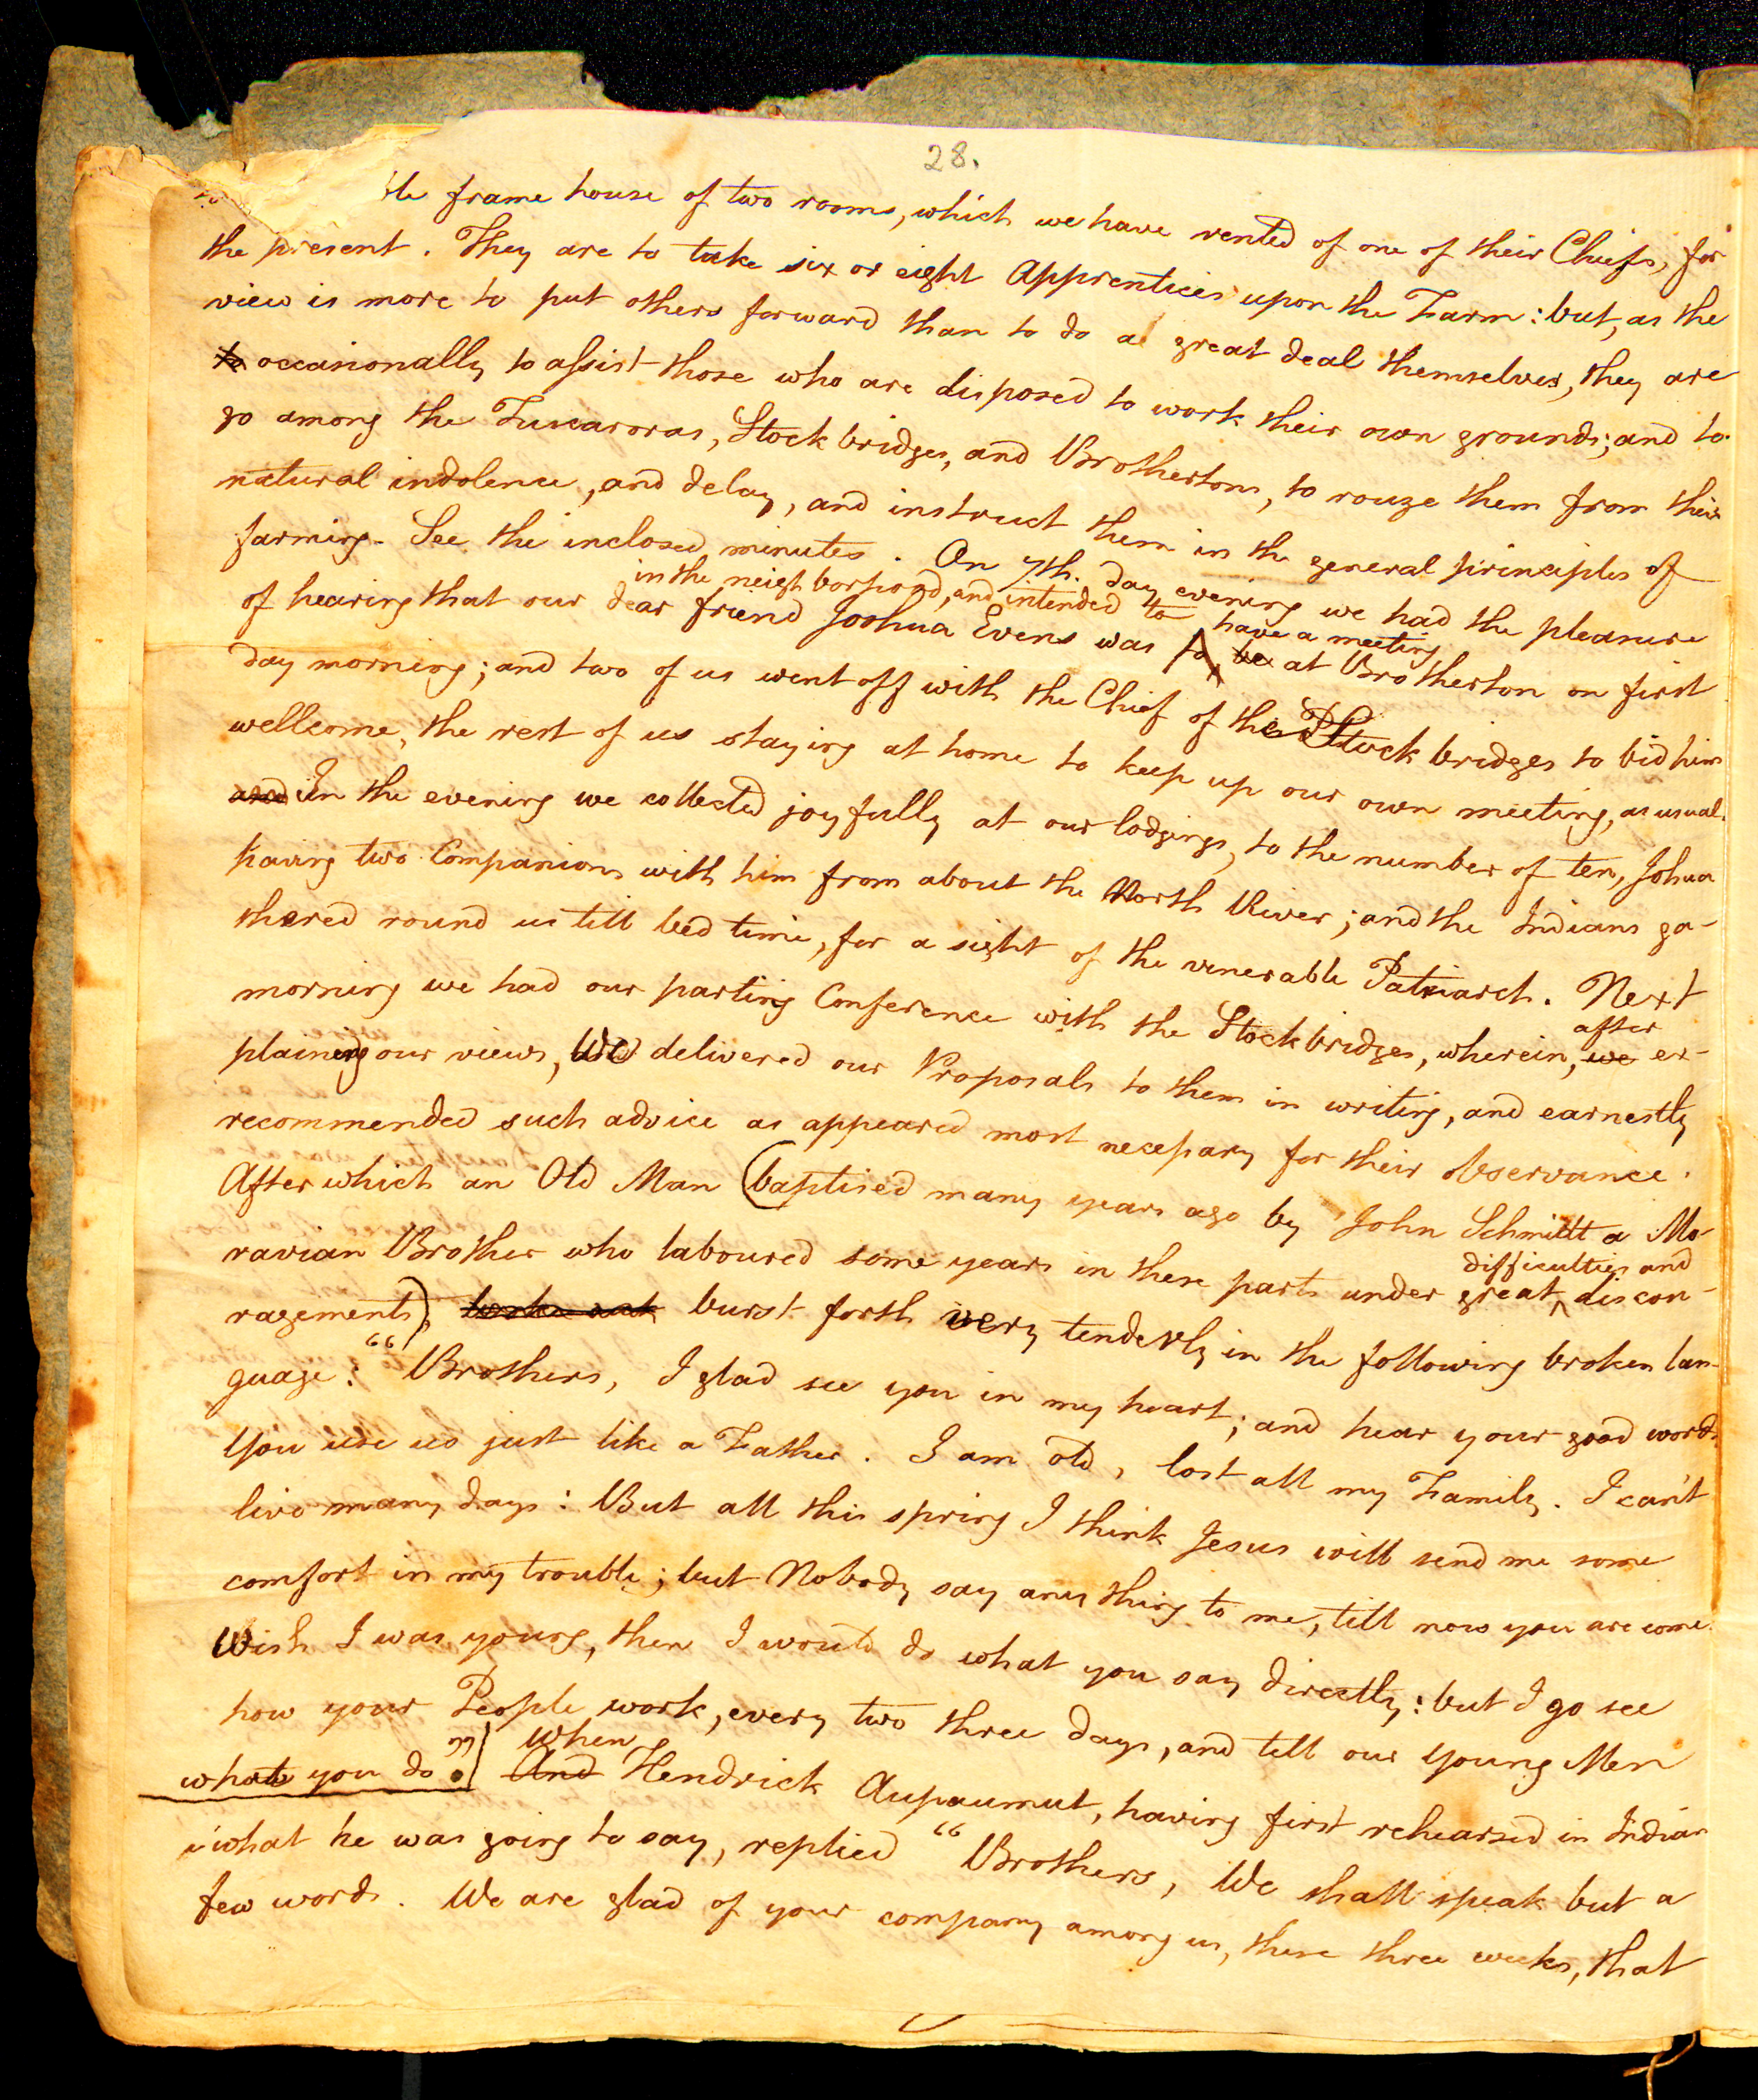 28.
le frame house of two rooms, which we have rented of one of their Chiefs, for
the present. They are to take six or eight Apprentices upon the Farm: but, as the
view is more to put others forward than to do a great deal themselves, they are
to occasionally to assist those who are disposed to work their own grounds; and to
go among the Tuscaroras, Stockbridges, and Brothertons, to rouze them from their
natural indolence, and delay, and instruct them in the general principles of
farming. See the inclosed minutes. On 7th. day evening we had the pleasure
in the neighborhood, and intended to have a meeting
of hearing that our dear friend Joshua Evens was to be at Brotherton on first
day morning; and two of us went off with the Chief of the Stockbridges to bid him
wellcome, the rest of us staying at home to keep up our own meeting, as usual.
and In the evening we collected joyfully at our lodgings, to the number of ten, Johua
having two Companions with him from about the North River; and the Indians ga-
thered round us till bed time, for a sight of the venerable Patriarch. Next
morning we had our parting Conference with the Stockbridges, wherein, we after ex-
plaining our views, We delivered our Proposals to them in writing, and earnestly
recommended such advice as appeared most necessary for their observance.
After which an Old Man (baptised many years ago by John Schmidt a Mo-
ravian Brother who laboured some years in these parts under great difficulties and discou-
ragements) broke out burst forth very tenderly in the following broken lan-
guage: "Brothers, I glad see you in my heart; and hear your good words
You use us just like a Father. I am old, lost all my Family. I can't
live many days: But all this spring I think Jesus will send me some
comfort in my trouble; but Nobody say any thing to me, till now you are come.
Wish I was young, then I would do what you say directly: but I go see
how your People work, every two three days, and tell our Young Men
what you do." And When Hendrick Aupaumut, having first rehearsed in Indian
what he was going to say, replied "Brothers, We shall speak but a
few words. We are glad of your company among us, these three weeks, that